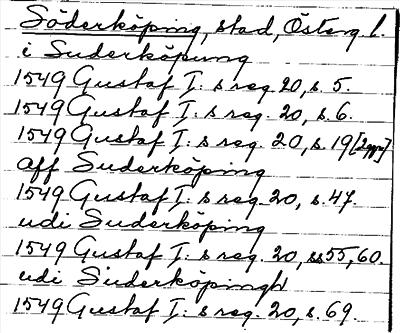 Söderköping, stad, Österg. l.
i Suderköpung
1549 Gustaf I: s reg. 20, s. 5.
1549 Gustaf I: s reg. 20, s. 6.
1549 Gustaf I: s reg. 20, s. 19 [2ggr]
aff Suderköping
1549 Gustaf I: s reg. 20, s. 47.
udi Suderköping
1549 Gustaf I: s reg. 20, ss 55, 60.
udi Suderköpingh
1549 Gustaf I: s reg. 20, s. 69.